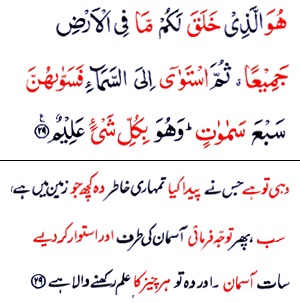 هُوَ الَّذِیْ خَلَقَ لَكُمْ مَّا فِی الْاَرْضِ
جَمِیْعًا ۗ ثُمَّ اسْتَوٰۤی اِلَی السَّمَآءِ فَسَوّٰىهُنَّ
سَبْعَ سَمٰوٰتٍ ؕ وَهُوَ بِكُلِّ شَیْءٍ عَلِیْمٌ ﴿۲۹﴾ ع
وہی تو ہے جس نے پیدا کیا تمہاری خاطر وہ کچھ جو زمین میں ہے،
سب ، پھر توجہ فرمائی آسمان کی طرف اور استوار کر دیے
سات آسمان ۔ اور وہ تو ہر چیز کا علم رکھنے والا ہے ﴿۲۹﴾